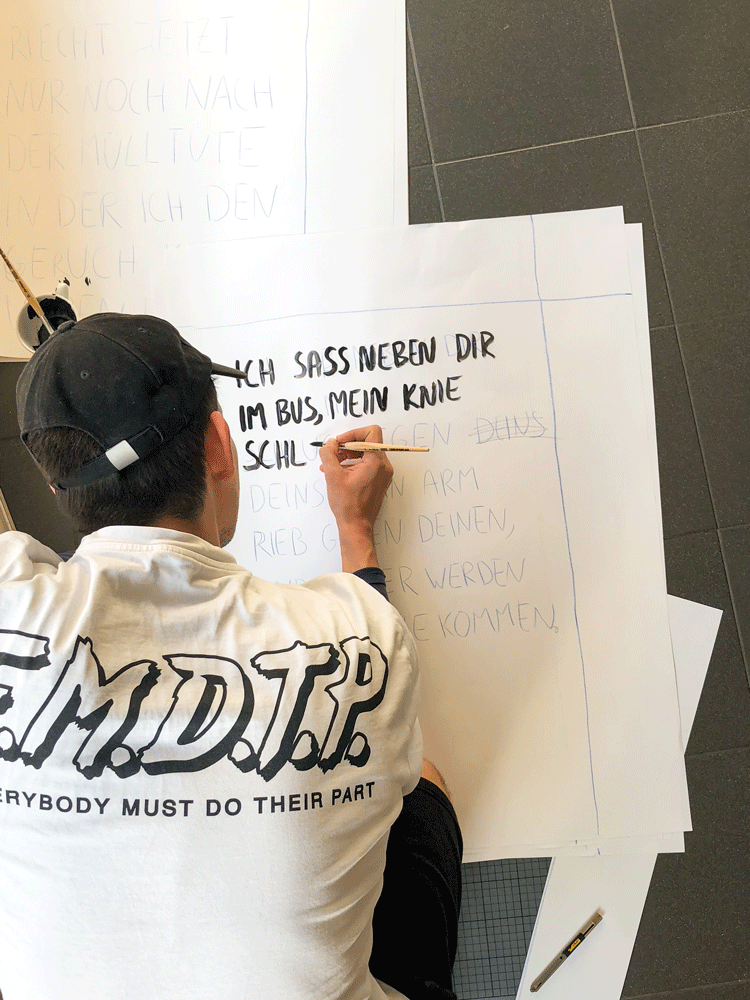 RIECHT JETZT
NUR NOCH NACH
DER MÜLLTÜTE
IN DER ICH DEN
GERUCH
ICH SASS NEBEN DIR
IM BUS, MEIN KNIE
SCHLUG GEGEN DEINS
DEINS ARM
RIEB GEGEN DEINEN,
WERDEN
KOMMEN.
E.M.D.T.P.
EVERYBODY MUST DO THEIR PART